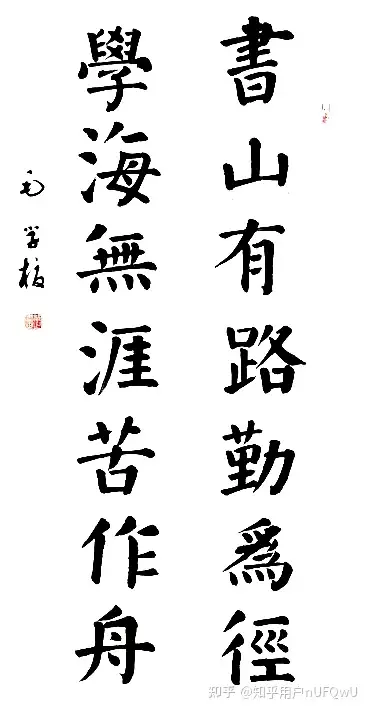 書山有路勤爲徑
學海無涯苦作舟
毛学
知乎 @知乎用户nUFQwU